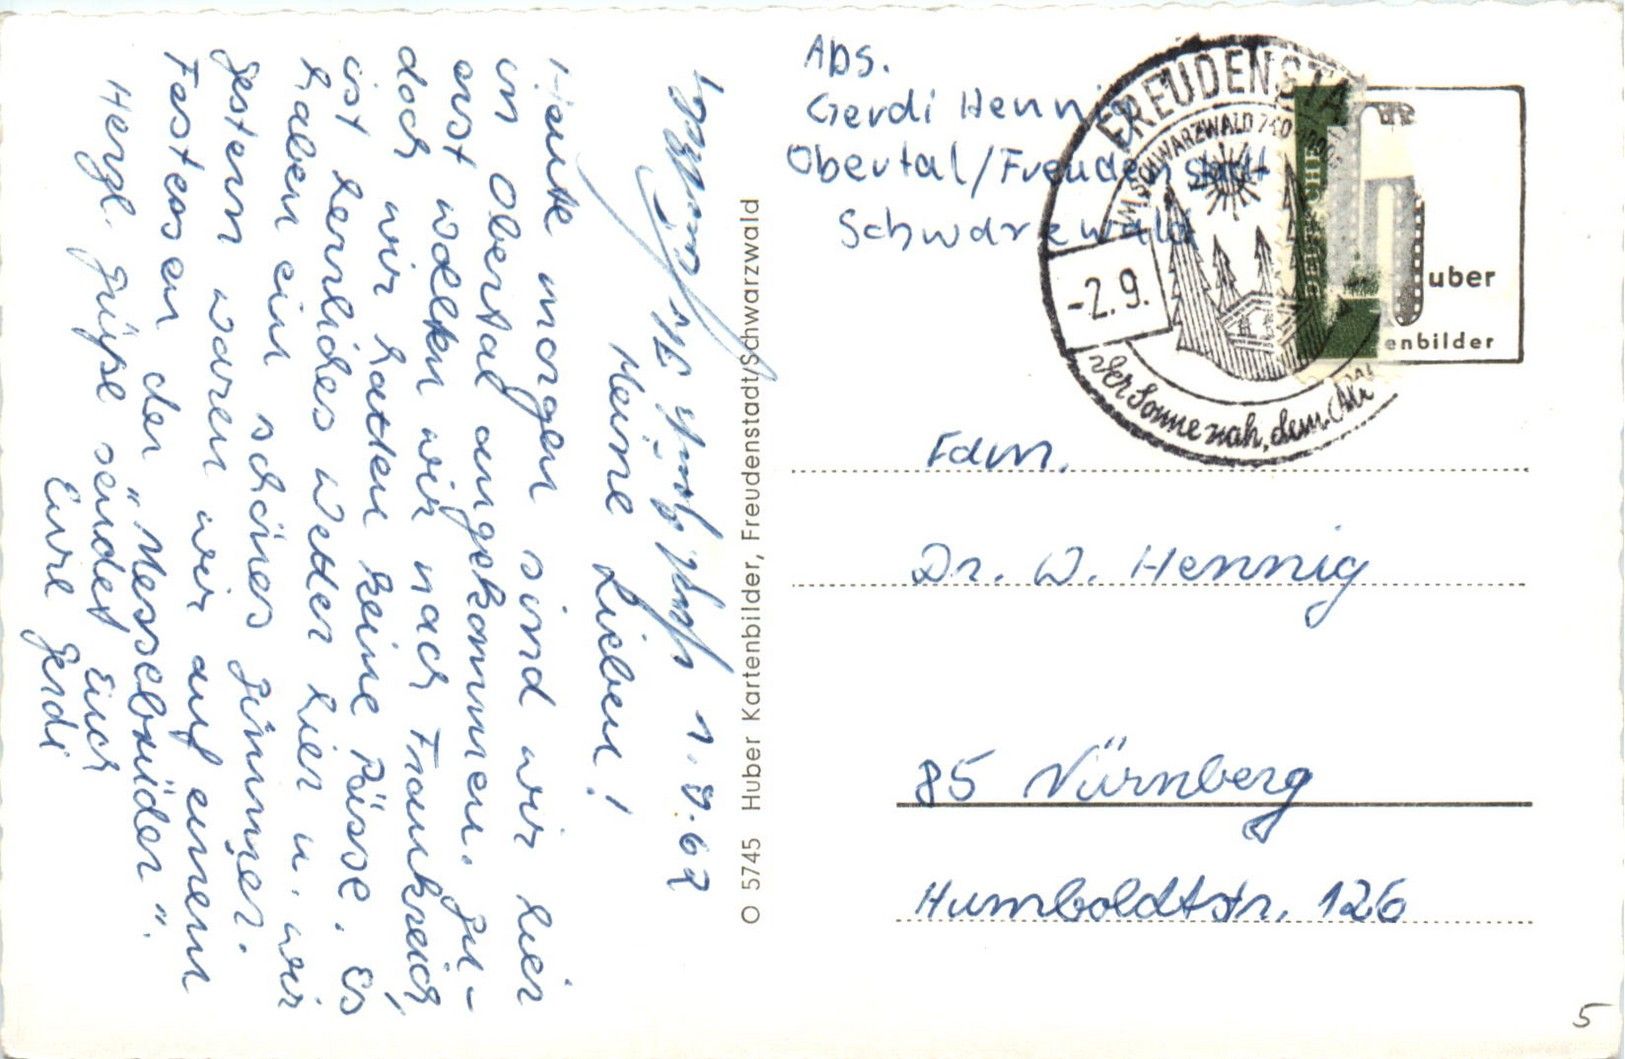 1.9.62
Meine Lieben!
Heute morgen sind wir hier
in Obertal angekommen. Zu-
erst wollten wir nach Frankreich,
doch wir hatten keine Pässe. Es
ist herrliches Wetter hier u. wir
haben ein schönes Zimmer.
Gestern waren wir auf einem
Festessen der "Messebrüder".
Herzl. Grüße sendet Euch
Eure Gerdi
O 5745 Huber Kartenbilder, Freudenstadt/Schwarzwald
Abs.
Gerdi Hennig
Obertal/Freudenstadt
Schwarzwald
FREUDENSTA
IM SCHWARZWALD
-2.9.
Der Sonne nah, dem
DEUTSCHE
uber
enbilder
Fam.
Dr. W. Hennig
85 Nürnberg
Humboldtstr. 126
5